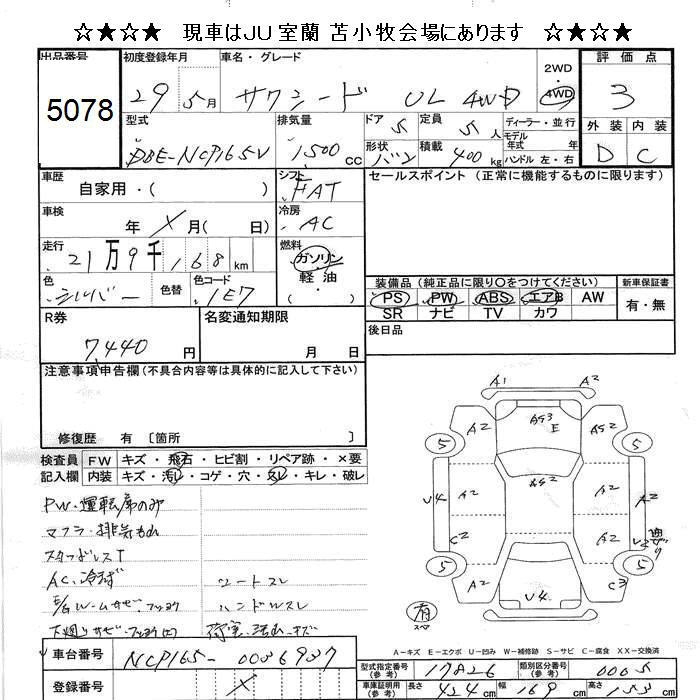 ☆★☆★ 現車はJU室蘭 苫小牧会場にあります ☆★☆★
出品番号 初度登録年月 車名・グレード 2WD 評価点
5078 29 5月 サクシード UL 4WD 4WD 3
型式 排気量 ドア 5 定員 5人 ディーラー・並行 外装 内装
DBE-NCP165V 1500cc 形状 バン 積載 400kg モデル年式 年式 D C
ハンドル 左・右
車歴 シフト セールスポイント (正常に機能するものに限ります)
自家用・( ) FAT
車検 冷房
年 X 月( 日) AC
走行 燃料
21万9千168km ガソリン
色 色替 色コード 軽油
シルバー 1E7 ( ・ )
装備品 (純正品に限り○をつけてください) 新車保証書
PS PW ABS エアB AW 有・無
SR ナビ TV カワ
R券 名変通知期限 後日品
7,440円 月 日
注意事項申告欄(不具合内容等は具体的に記入して下さい)
修復歴 有 〔箇所
検査員 FW キズ・飛石・ヒビ割・リペア跡・×要
記入欄 内装 キズ・汚レ・コゲ・穴・スレ・キレ・破レ
PW・運転席のみ
マフラ・排気もれ
スタッドレスT
AC、冷えず シートスレ
ハンドルスレ
A1 A2
A2 AS3 E AS2
5 5
V4 A2 AS2 A2 A2
C2 A2
5 5
A2 V4 C3
有 スペア
A-キズ E-エクボ U-凹み W-補修跡 S-サビ C-腐食 XX-交換済
車台番号 NCP165-0036987
登録番号 X
型式指定番号 (参考) 17826 類別区分番号 (参考) 0005
車庫証明用 (参考) 長さ 424cm 幅 169cm 高さ 153cm